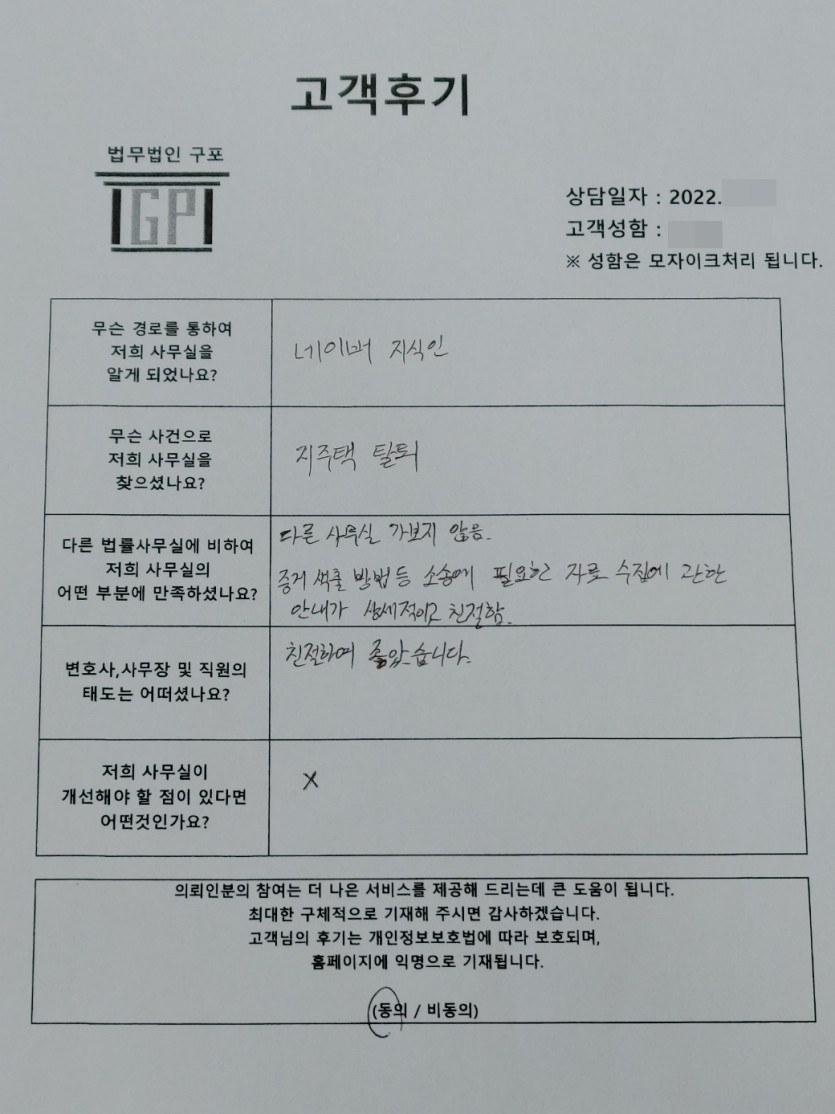 고객후기
법무법인 구포
IGPI
상담일자 : 2022.
고객성함 :
※ 성함은 모자이크처리 됩니다.
무슨 경로를 통하여
저희 사무실을
알게 되었나요?
네이버 지식인
무슨 사건으로
저희 사무실을
찾으셨나요?
지주택 탈퇴
다른 법률사무실에 비하여
저희 사무실의
어떤 부분에 만족하셨나요?
다른 사무실 가보지 않음.
증거 색출 방법 등 소송에 필요한 자료 수집에 관한
안내가 상세적이고 친절함.
변호사,사무장 및 직원의
태도는 어떠셨나요?
친절하여 좋았습니다.
저희 사무실이
개선해야 할 점이 있다면
어떤것인가요?
X
의뢰인분의 참여는 더 나은 서비스를 제공해 드리는데 큰 도움이 됩니다.
최대한 구체적으로 기재해 주시면 감사하겠습니다.
고객님의 후기는 개인정보보호법에 따라 보호되며,
홈페이지에 익명으로 기재됩니다.
(동의 / 비동의)